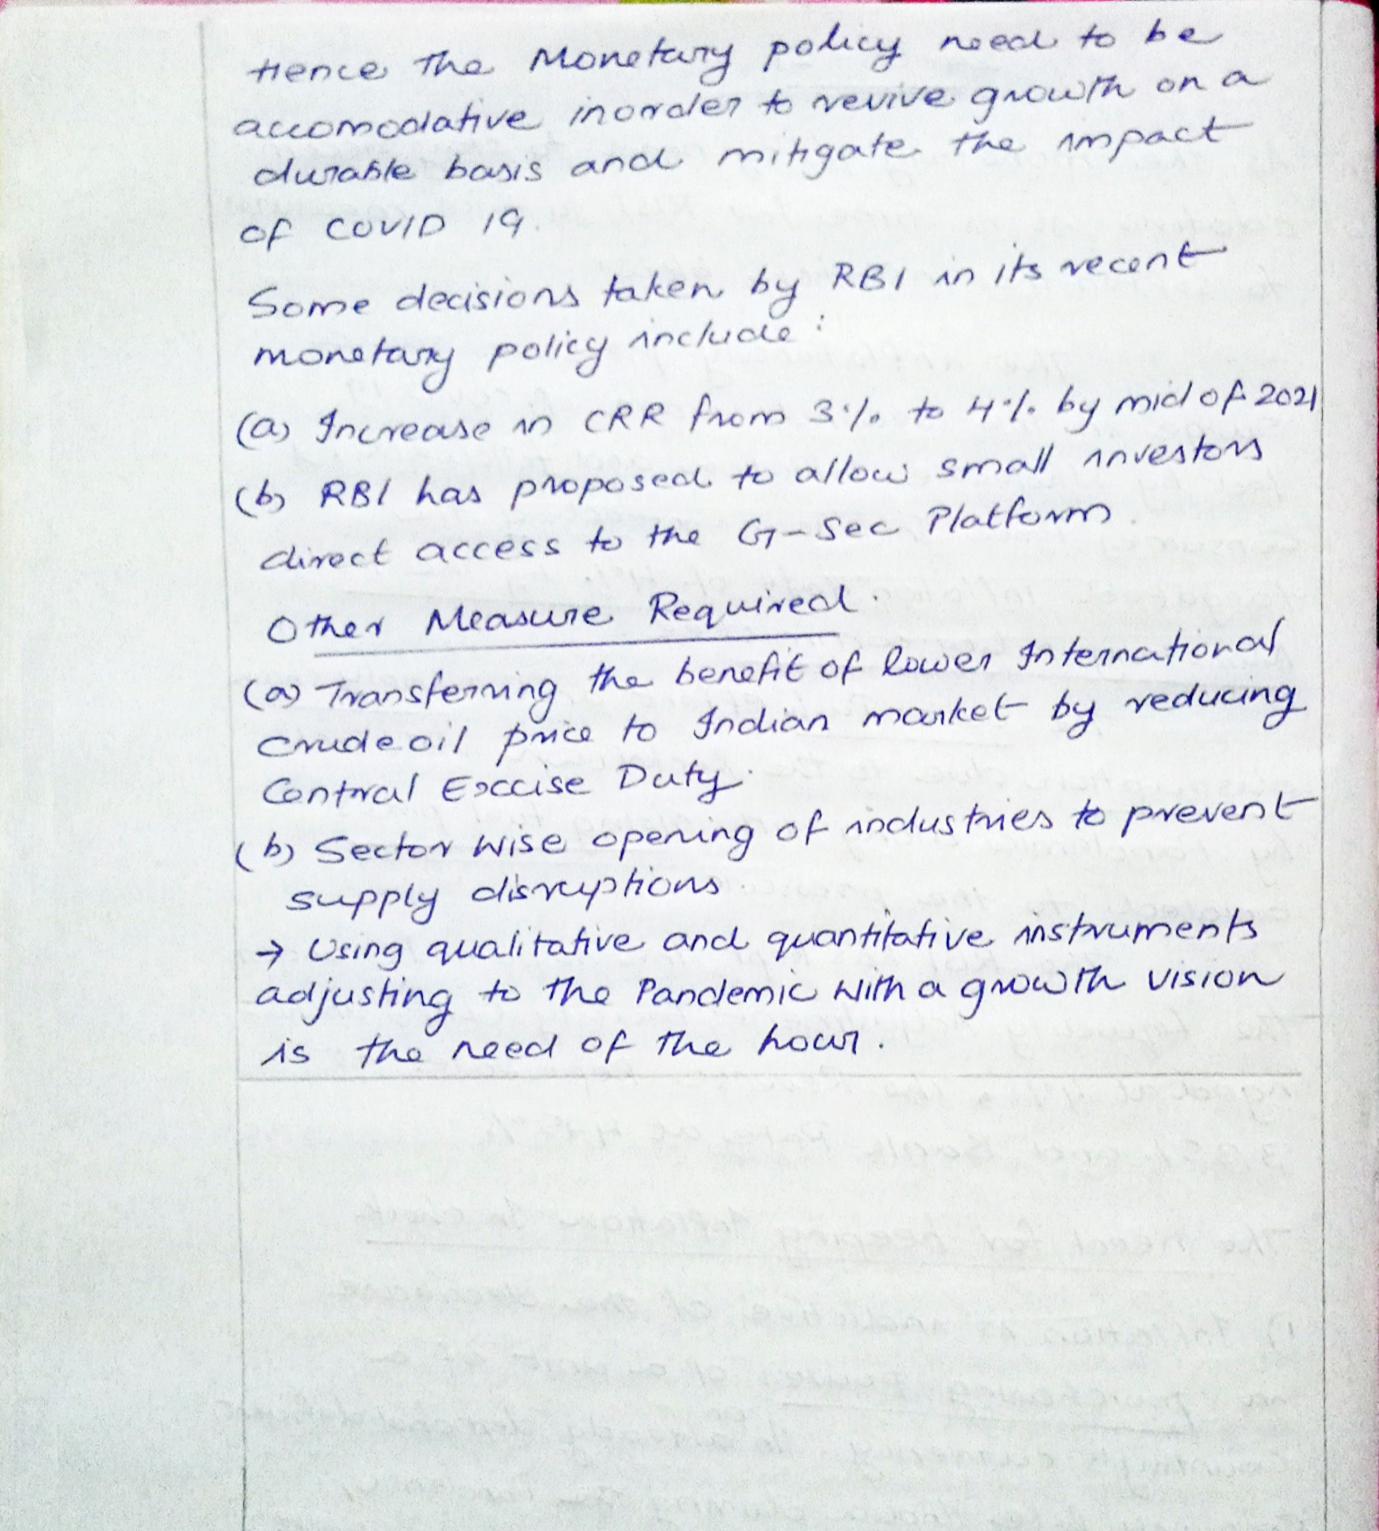 Hence the Monetary policy need to be
accomodative inorder to revive growth on a
durable basis and mitigate the impact
of COVID 19.
Some decisions taken by RBI in its recent
monetary policy include:
(a) Increase in CRR from 3% to 4% by mid of 2021
(b) RBI has proposed to allow small investors
direct access to the G-Sec Platform.
Other Measure Required.
(a) Transferring the benefit of lower International
crude oil price to Indian market by reducing
Central Excise Duty.
(b) Sector wise opening of industries to prevent
supply disruptions.
→ Using qualitative and quantitative instruments
adjusting to the Pandemic with a growth vision
is the need of the hour.